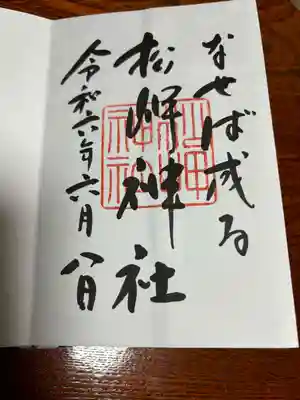 なせば成る
松岬神社
令和六年六月八日